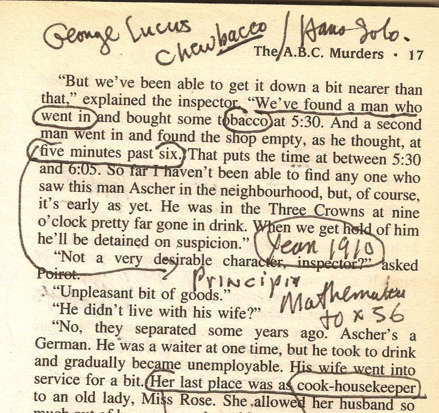 George Lucus
Chewbacco / Hans Solo.
The A.B.C. Murders · 17
"But we've been able to get it down a bit nearer than
that," explained the inspector. "We've found a man who
went in and bought some tobacco at 5:30. And a second
man went in and found the shop empty, as he thought, at
five minutes past six. That puts the time at between 5:30
and 6:05. So far I haven't been able to find any one who
saw this man Ascher in the neighbourhood, but, of course,
it's early as yet. He was in the Three Crowns at nine
o'clock pretty far gone in drink. When we get hold of him
he'll be detained on suspicion."
Year 1910
"Not a very desirable character, inspector?" asked
Poirot.
Principia
"Unpleasant bit of goods."
Mathematica
"He didn't live with his wife?"
to x 56
"No, they separated some years ago. Ascher's a
German. He was a waiter at one time, but he took to drink
and gradually became unemployable. His wife went into
service for a bit. Her last place was as cook-housekeeper
to an old lady, Miss Rose. She allowed her husband so